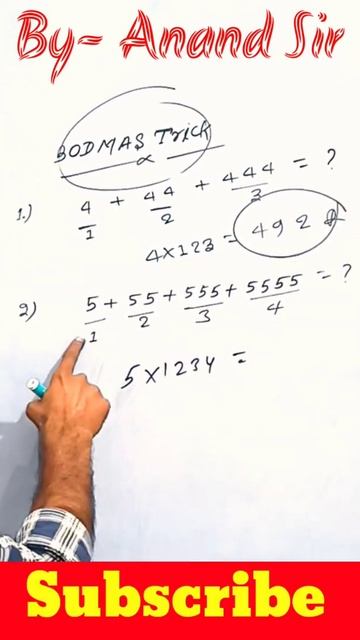 By- Anand Sir
BODMAS Trick
1.) 4 + 44 + 444 = ?
1 2 3
4×123 = 492
2) 5 + 55 + 555 + 5555 = ?
1 2 3 4
5×1234 =
Subscribe